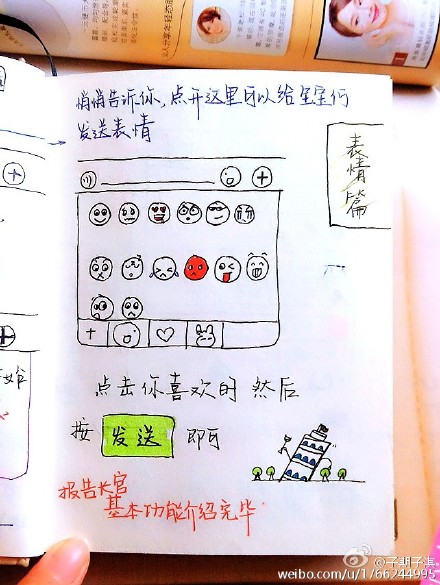 悄悄告诉你，点开这里可以给星星们
发送表情
表情篇
点击你喜欢的 然后
按 发送 即可
报告长官
基本功能介绍完毕
@子期子淇
weibo.com/u/1766244995